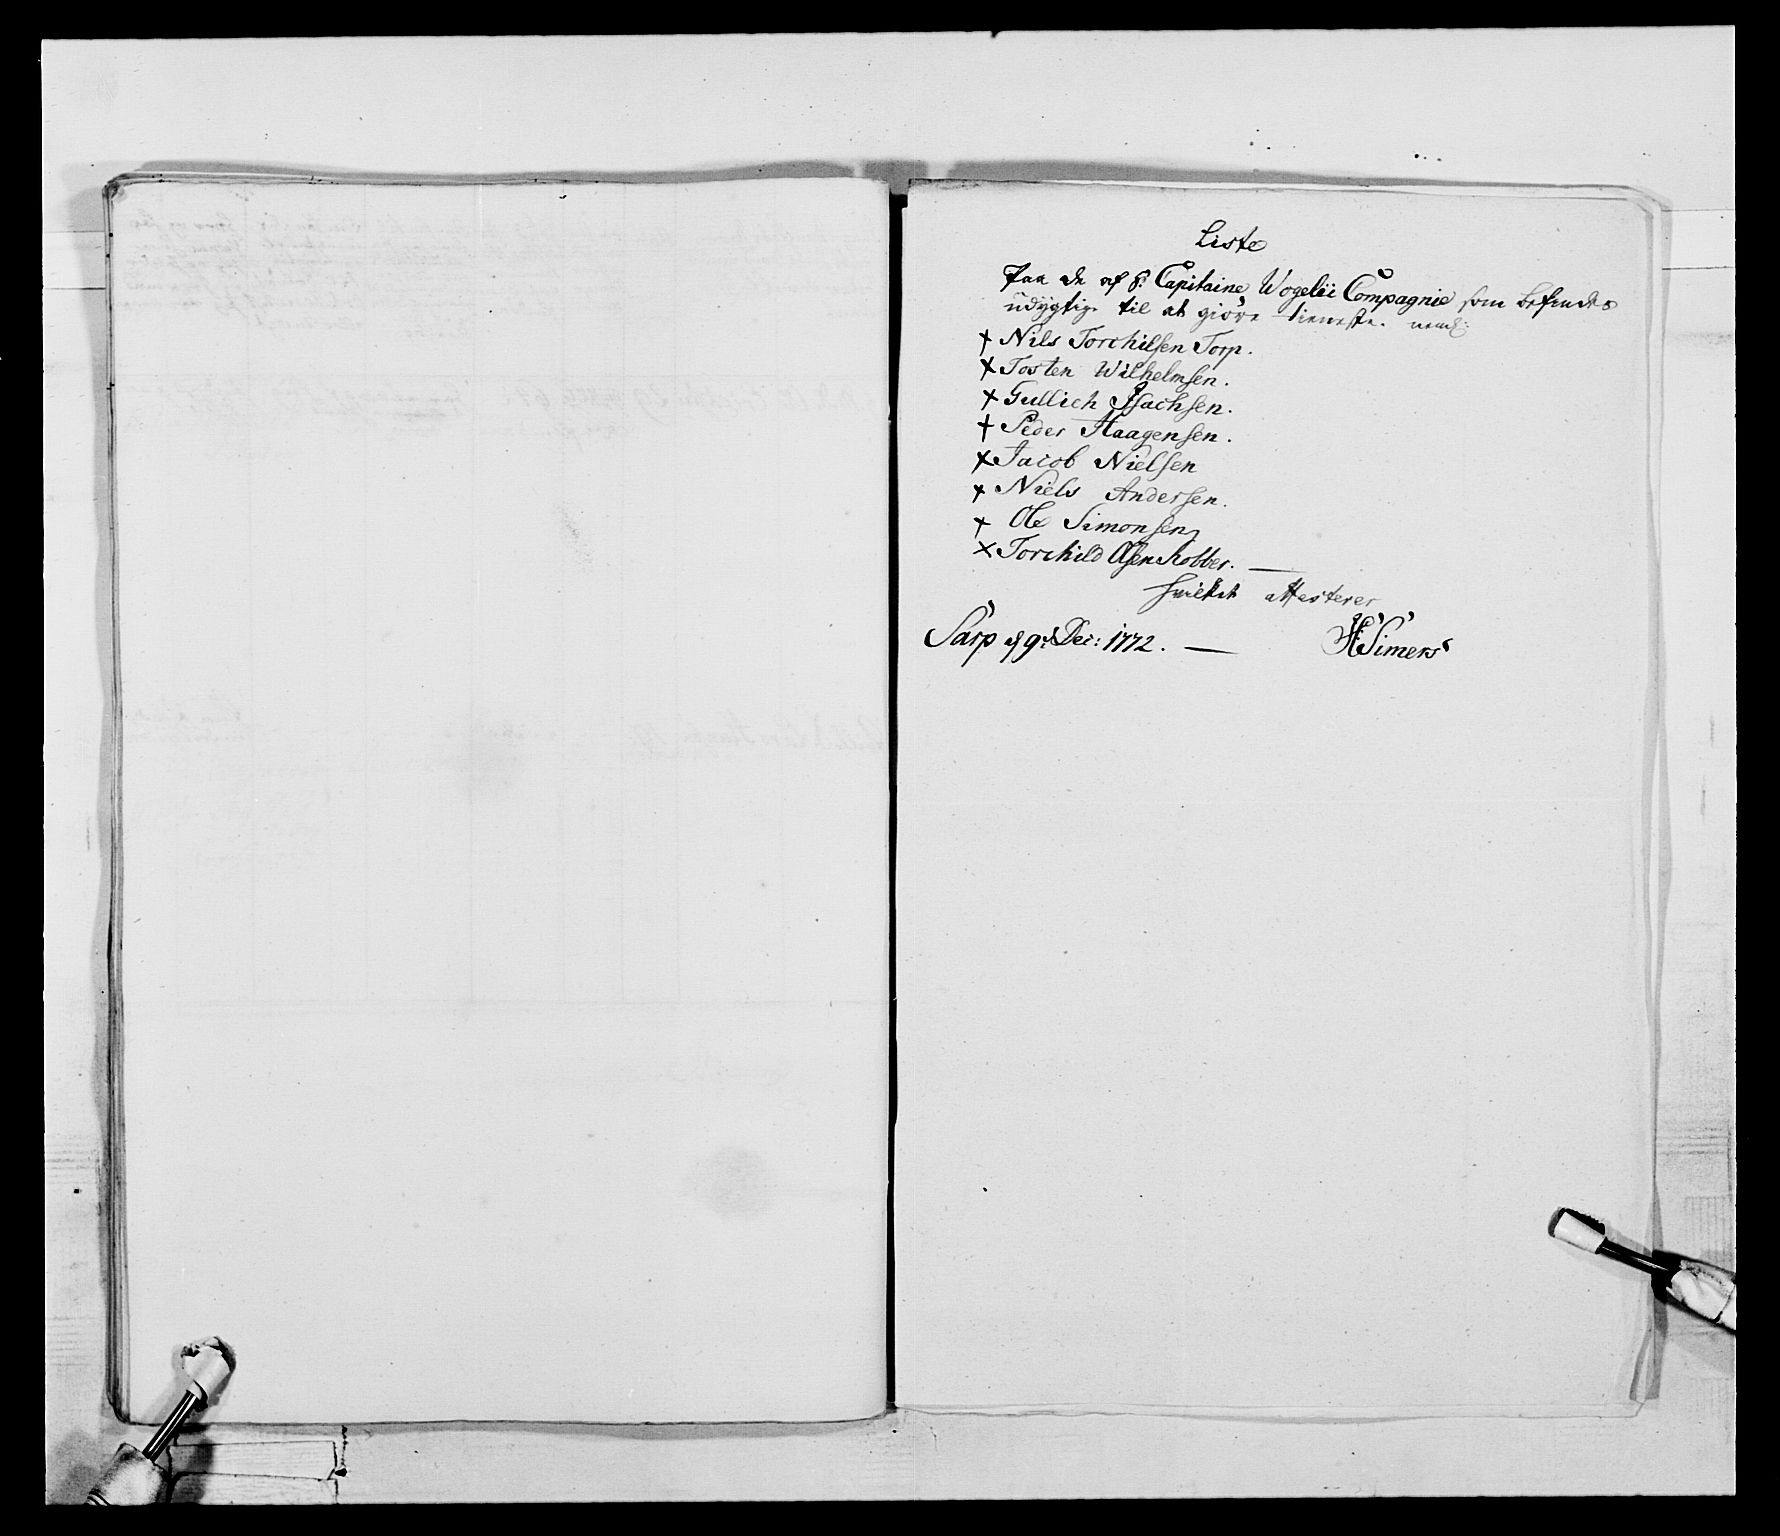 Liste
Paa de af Hr. Capitaine Wogelii Compagnie som befindes
udÿgtige til at giöre tieneste. neml:
† Nils Torchilsen Torp.
× Tosten Wilhelmsen.
× Gullich Isachsen.
† Peder Haagensen.
× Jacob Nielsen
× Niels Andersen.
† Ole Simonsen
× Torchild Olsen Kobber. —
hvilket attesterer
Sarp d 9d Dec: 1772. — H Simers